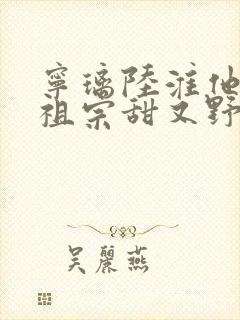 寧璃陸淮他
祖宗甜又野
吴麗燕